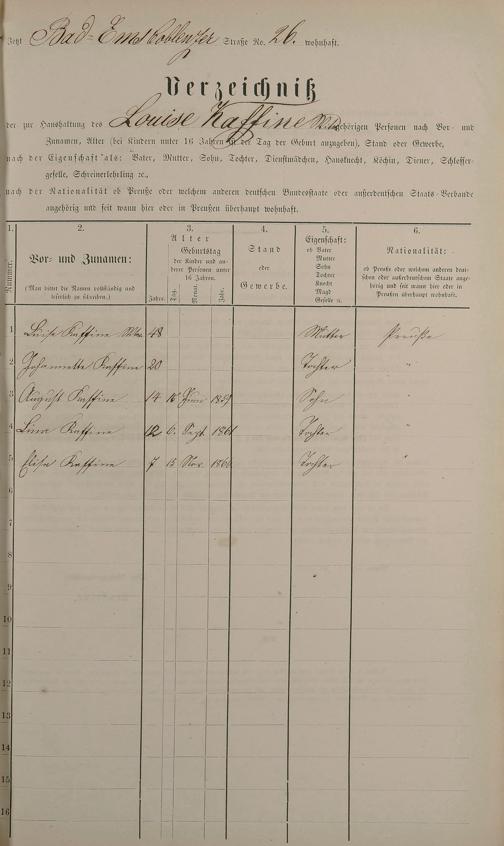 Jetzt Bad-Ems Coblenzer Straße No. 26. wohnhaft.
Verzeichniß
der zur Haushaltung des Louise Kaffine Wtw. gehörigen Personen nach Vor- und
Zunamen, Alter (bei Kindern unter 16 Jahren ist der Tag der Geburt anzugeben), Stand oder Gewerbe,
nach der Eigenschaft als: Vater, Mutter, Sohn, Tochter, Dienstmädchen, Hausknecht, Köchin, Diener, Schlosser-
geselle, Schreinerlehrling ꝛc.,
nach der Nationalität ob Preuße oder welchem anderen deutschen Bundesstaate oder außerdeutschen Staats-Verbande
angehörig und seit wann hier oder in Preußen überhaupt wohnhaft.
1. 2. 3. 4. 5. 6.
Nummer.
Vor- und Zunamen:
(Man bittet die Namen vollständig und
leserlich zu schreiben.)
Alter
Geburtstag
der Kinder und an-
derer Personen unter
16 Jahren.
Jahre. Tag. Monat. Jahr.
Stand
oder
Gewerbe.
Eigenschaft:
ob Vater
Mutter
Sohn
Tochter
Knecht
Magd
Geselle u.
Nationalität:
ob Preuße oder welchem anderen deut-
schen oder außerdeutschen Staate ange-
hörig und seit wann hier oder in
Preußen überhaupt wohnhaft.
1 Luise Kaffine Wtw. 48 Mutter Preuße
2 Johannette Kaffine 20 Tochter "
3 August Kaffine 14 Juni 1859 Sohn "
4 Lina Kaffine 12 6. Sept. 1861 Tochter "
5 Elisa Kaffine 7 15 Nov. 1866 Tochter "
6
7
8
9
10
11
12
13
14
15
16